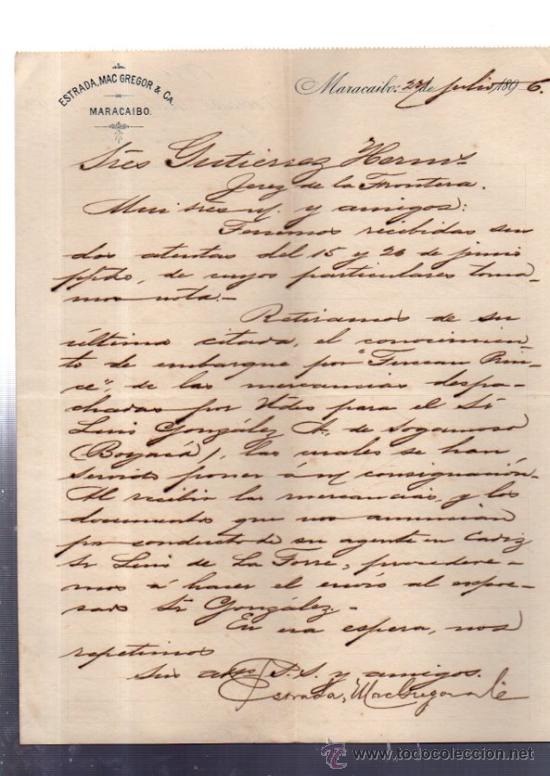 ESTRADA, MAC GREGOR & CA.
MARACAIBO.
Maracaibo: 22 de Julio 1896.
Sres Gutierrez Hermˢ
Jerez de la Frontera.
Muy sres ms. y amigos:
Tenemos recibidas sus
dos atentas del 15 y 20 de junio
ppdo, de cuyos particulares toma-
mos nota.-
Retiramos de su
última citada, el conocimien-
to de embarque por "
ce", de las mercancias despa-
chadas por Udes para el Sr
Luis González M. de Sogamoso
(Boyacá), las cuales se han
servido poner á consignación.
Al recibir las mercancias, y los
documentos que nos anuncian
por conducto de su agente en Cadiz
Sr Luis de La Torre, procedere-
mos á hacer el envio al expre-
sado Sr González-
En esa espera, nos
repetimos
Sus S.S. y amigos.
Estrada, MacGregor & Ca
todocoleccion
www.todocoleccion.net